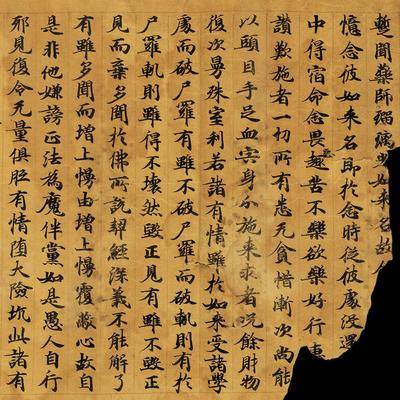 蹔聞藥師瑠璃光如来名故
憶念彼如来名即於念時從彼處没還
中得宿命念畏趣苦不樂欲樂好行惠
讃歎施者一切所有悉无貪惜漸次尚能
以頭目手足血宍身分施来求者况餘財物
復次曼殊室利若諸有情雖於如来受諸學
處而破尸羅有雖不破尸羅而破軌則有於
尸羅軌則雖得不壞然毀正見有雖不毀正
見而棄多聞於佛所說契經深義不能解了
有雖多聞而增上慢由增上慢覆蔽心故自
是非他嫌謗正法為魔伴黨如是愚人自行
邪見復令无量俱胝有情墮大險坑此諸有